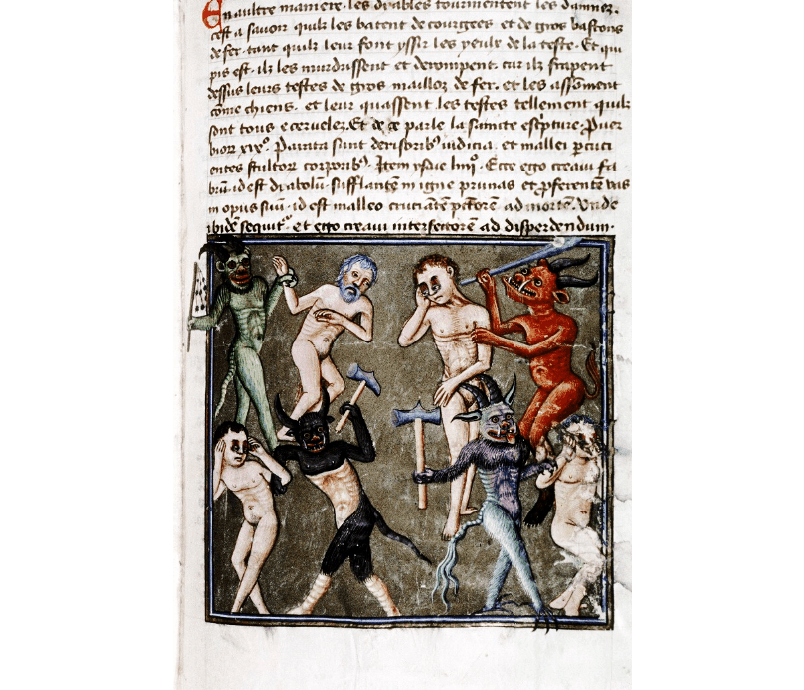 En aultre maniere les dyables tourmentent les dampnez.
cest a savoir quilz les batent de courgees et de gros bastons
de fer. tant quilz leur font yssir les yeulx de la teste. Et qui
pis est. ilz les murdrissent et derompent. car ilz frapent
dessus leurs testes de gros mailloz de fer. et les assoment
come chiens. et leur quassent les testes tellement quilz
sont tous ecervelez. Et de ce parle la saincte escripture. Prover
bior xix⁰. Parata sunt derisorib⁹ iudicia. et mallei pcuci
entes stultor corporib⁹. Item ysaie liiij⁰. Ecce ego creavi fa
bru. id est dyabolu. sufflante in igne prunas et pferente vas
in opus suu. id est malleo cruciate pctore ad morte. Unde
ibide sequit. et ego creavi interfectore ad disperdendum.